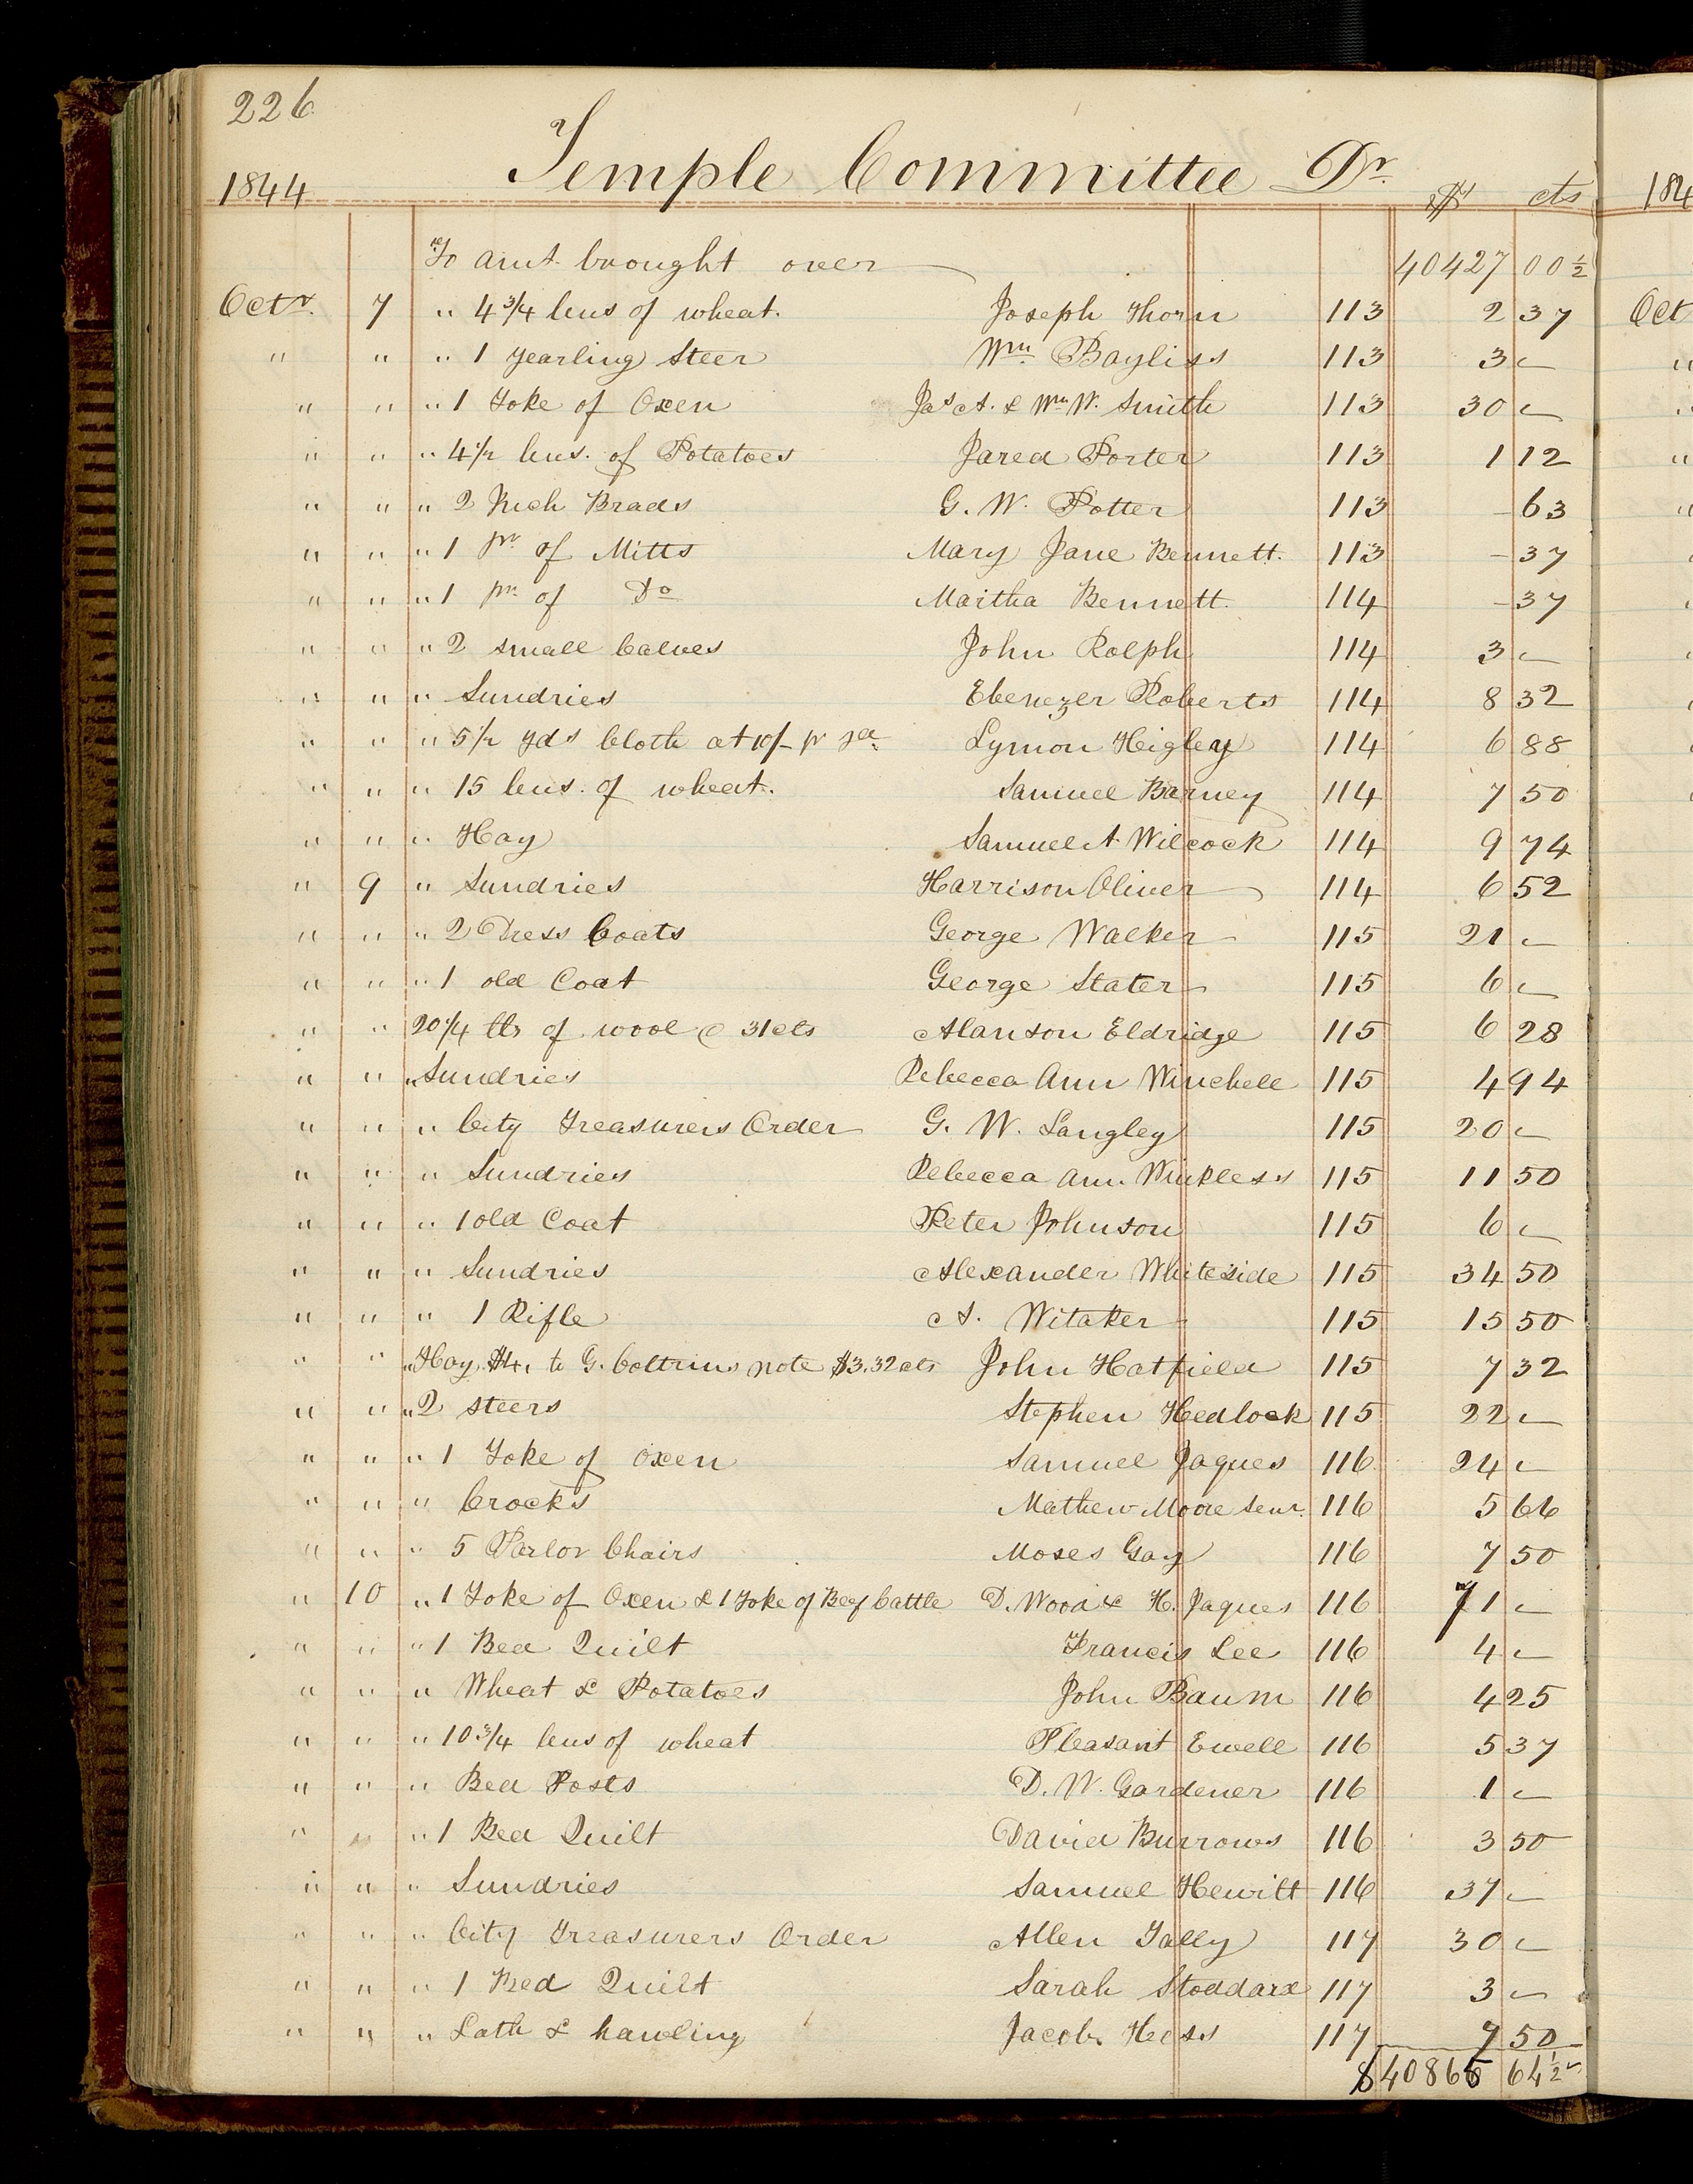 226
1844 Temple Committee Dr. $ cts 184
To amt brought over 40427 00 1/2
Octr. 7 " 4 3/4 bus of wheat. Joseph Thorn 113 2 37 Oct
" " " 1 yearling Steer Wm. Bayliss 113 3 –
" " " 1 Yoke of Oxen Jas A. & Wm W. Smith 113 30 –
" " " 4 1/2 bus. of Potatoes Jared Porter 113 1 12
" " " 2 Inch Brads G. W. Potter 113 – 63
" " " 1 pr of Mitts Mary Jane Bennett. 113 – 37
" " " 1 pr. of Do Martha Bennett. 114 – 37
" " " 2 small Calves John Rolph 114 3 –
" " " Sundries Ebenezer Roberts 114 8 32
" " " 5 1/2 yds Cloth at 10/– pr yd. Lymon Heigley 114 6 88
" " " 15 bus. of wheat. Samuel Barney 114 7 50
" " " Hay Samuel A. Wilcock 114 9 74
" 9 " Sundries Harrison Oliver 114 6 52
" " " 2 Dress Coats George Walker 115 21 –
" " " 1 old Coat George Slater 115 6 –
" " 20 1/4 lbs of wool @ 31 cts Alanson Eldridge 115 6 28
" " " Sundries Rebecca Ann Winchell 115 4 94
" " " City Treasurers Order G. W. Langley 115 20 –
" " " Sundries Rebecca Ann. Winkless 115 11 50
" " " 1 old Coat Peter Johnson 115 6 –
" " " Sundries Alexander Whiteside 115 34 50
" " " 1 Rifle A. Witaker 115 15 50
" " " Hay $4, to G. Coltrins note $3.32 cts John Hatfield 115 7 32
" " " 2 steers Stephen Hedlock 115 22 –
" " " 1 Yoke of Oxen Samuel Jaques 116 24 –
" " " Crocks Mathew Moore Senr. 116 5 66
" " " 5 Parlor Chairs Moses Gay 116 7 50
" 10 " 1 Yoke of Oxen & 1 Yoke of Beef Cattle D. Wood & H. Jaques 116 71 –
" " " 1 Bed Quilt Francis Lee 116 4 –
" " " Wheat & Potatoes John Baum 116 4 25
" " " 10 3/4 bus of wheat Pleasant Ewell 116 5 37
" " " Bed Posts D. W. Gardener 116 1 –
" " " 1 Bed Quilt David Burrows 116 3 50
" " " Sundries Samuel Hewitt 116 37 –
" " " City Treasurers Order Allen Tally 117 30 –
" " " 1 Bed Quilt Sarah Stoddard 117 3 –
" " " Lath & hawling Jacob Hess 117 7 50
$40865 64 1/2